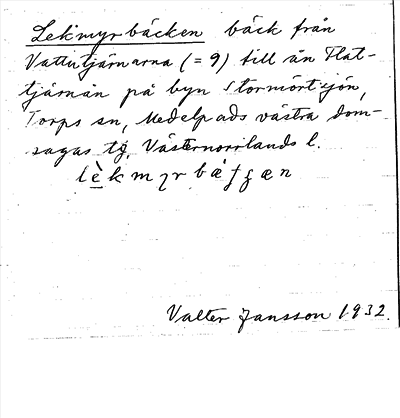 Lekmyrbäcken bäck från
Vattutjärnarna (= 9) till ån Flat-
tjärnån på byn Stormörtsjön,
Torps sn, Medelpads västra dom-
sagas tg, Västernorrlands l.
lèkmyrbæ̀ʃʓæn
Valter Jansson 1932.